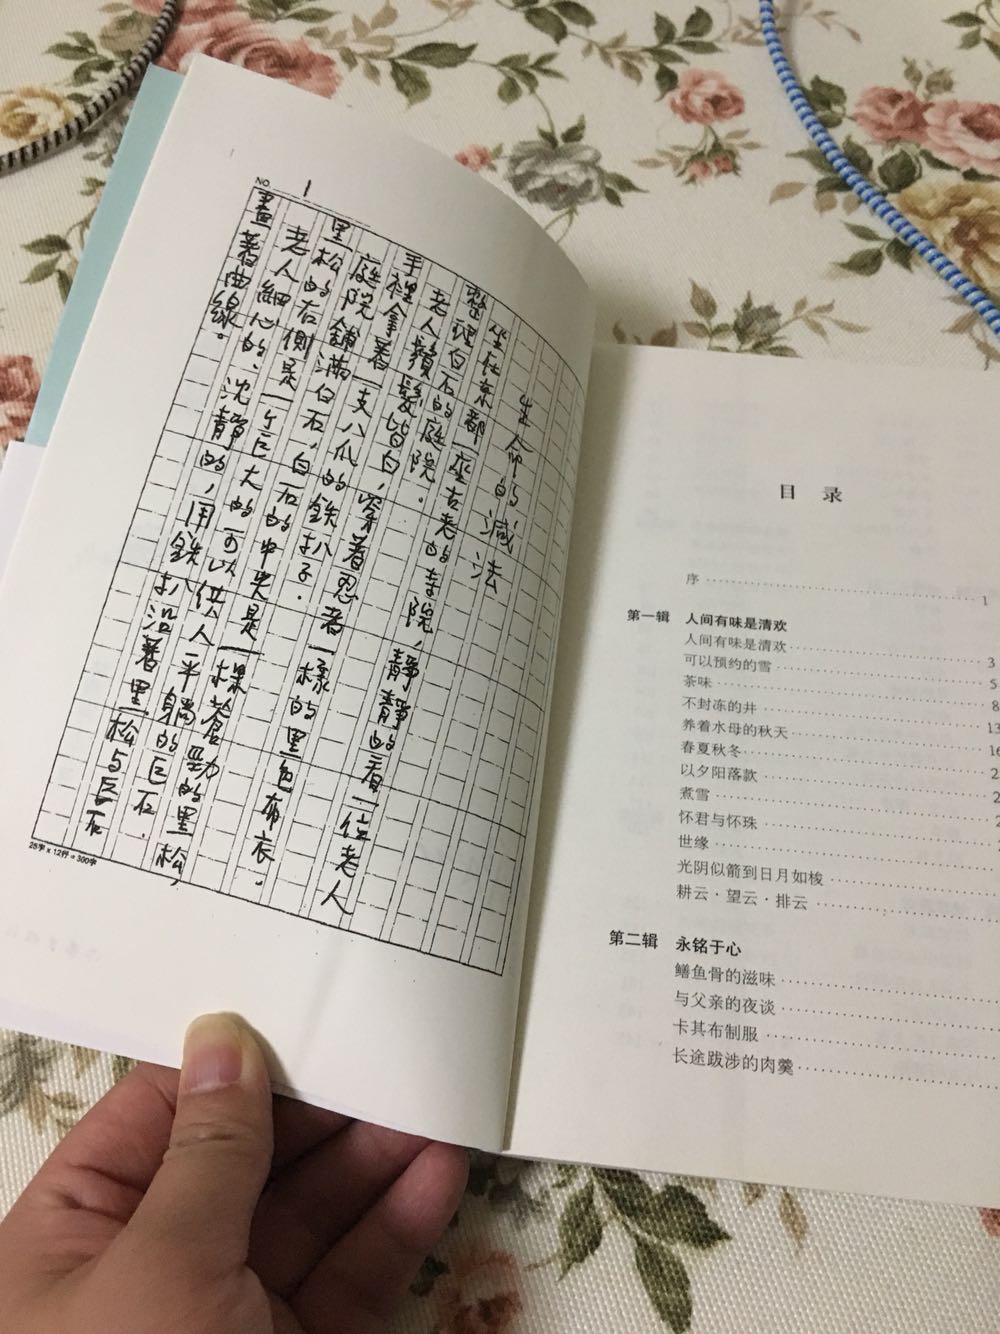 NO. 1
生命的减法
坐在京都一座古老的寺院,靜靜的看一位老人
整理白石的庭院。
老人鬚髮皆白,穿著忍者一樣的黑色布衣,
手裡拿著一支八爪的鉄扒子。
庭院鋪滿白石,白石的中央是一棵蒼勁的黑松,
黑松的右側是一个巨大的可以供人平躺的巨石。
老人細心的、沈靜的,用鉄扒沿著黑松与巨石
畫著曲線。
25字 x 12行 = 300字
目 录
序 1
第一辑 人间有味是清欢
人间有味是清欢 3
可以预约的雪 5
茶味 8
不封冻的井
养着水母的秋天
春夏秋冬
以夕阳落款
煮雪
怀君与怀珠
世缘
光阴似箭到日月如梭
耕云·望云·排云
第二辑 永铭于心
鳝鱼骨的滋味
与父亲的夜谈
卡其布制服
长途跋涉的肉羹